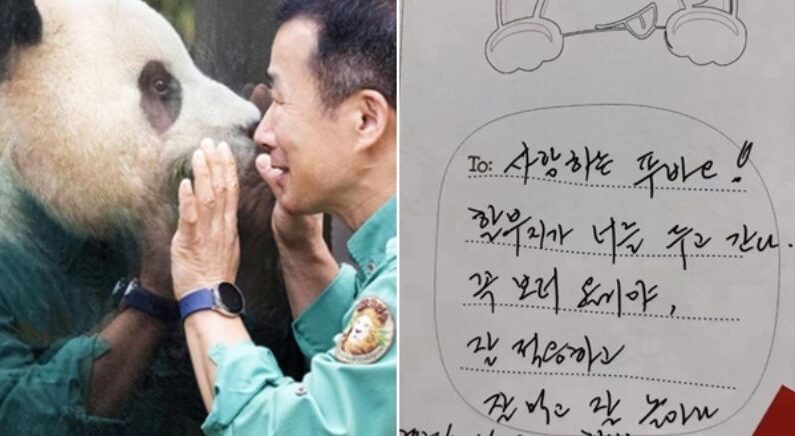 To: 사랑하는 푸바오!
할부지가 너를 두고 간다.
꼭 보러 올게야,
잘 적응하고
잘 먹고 잘 놀아라